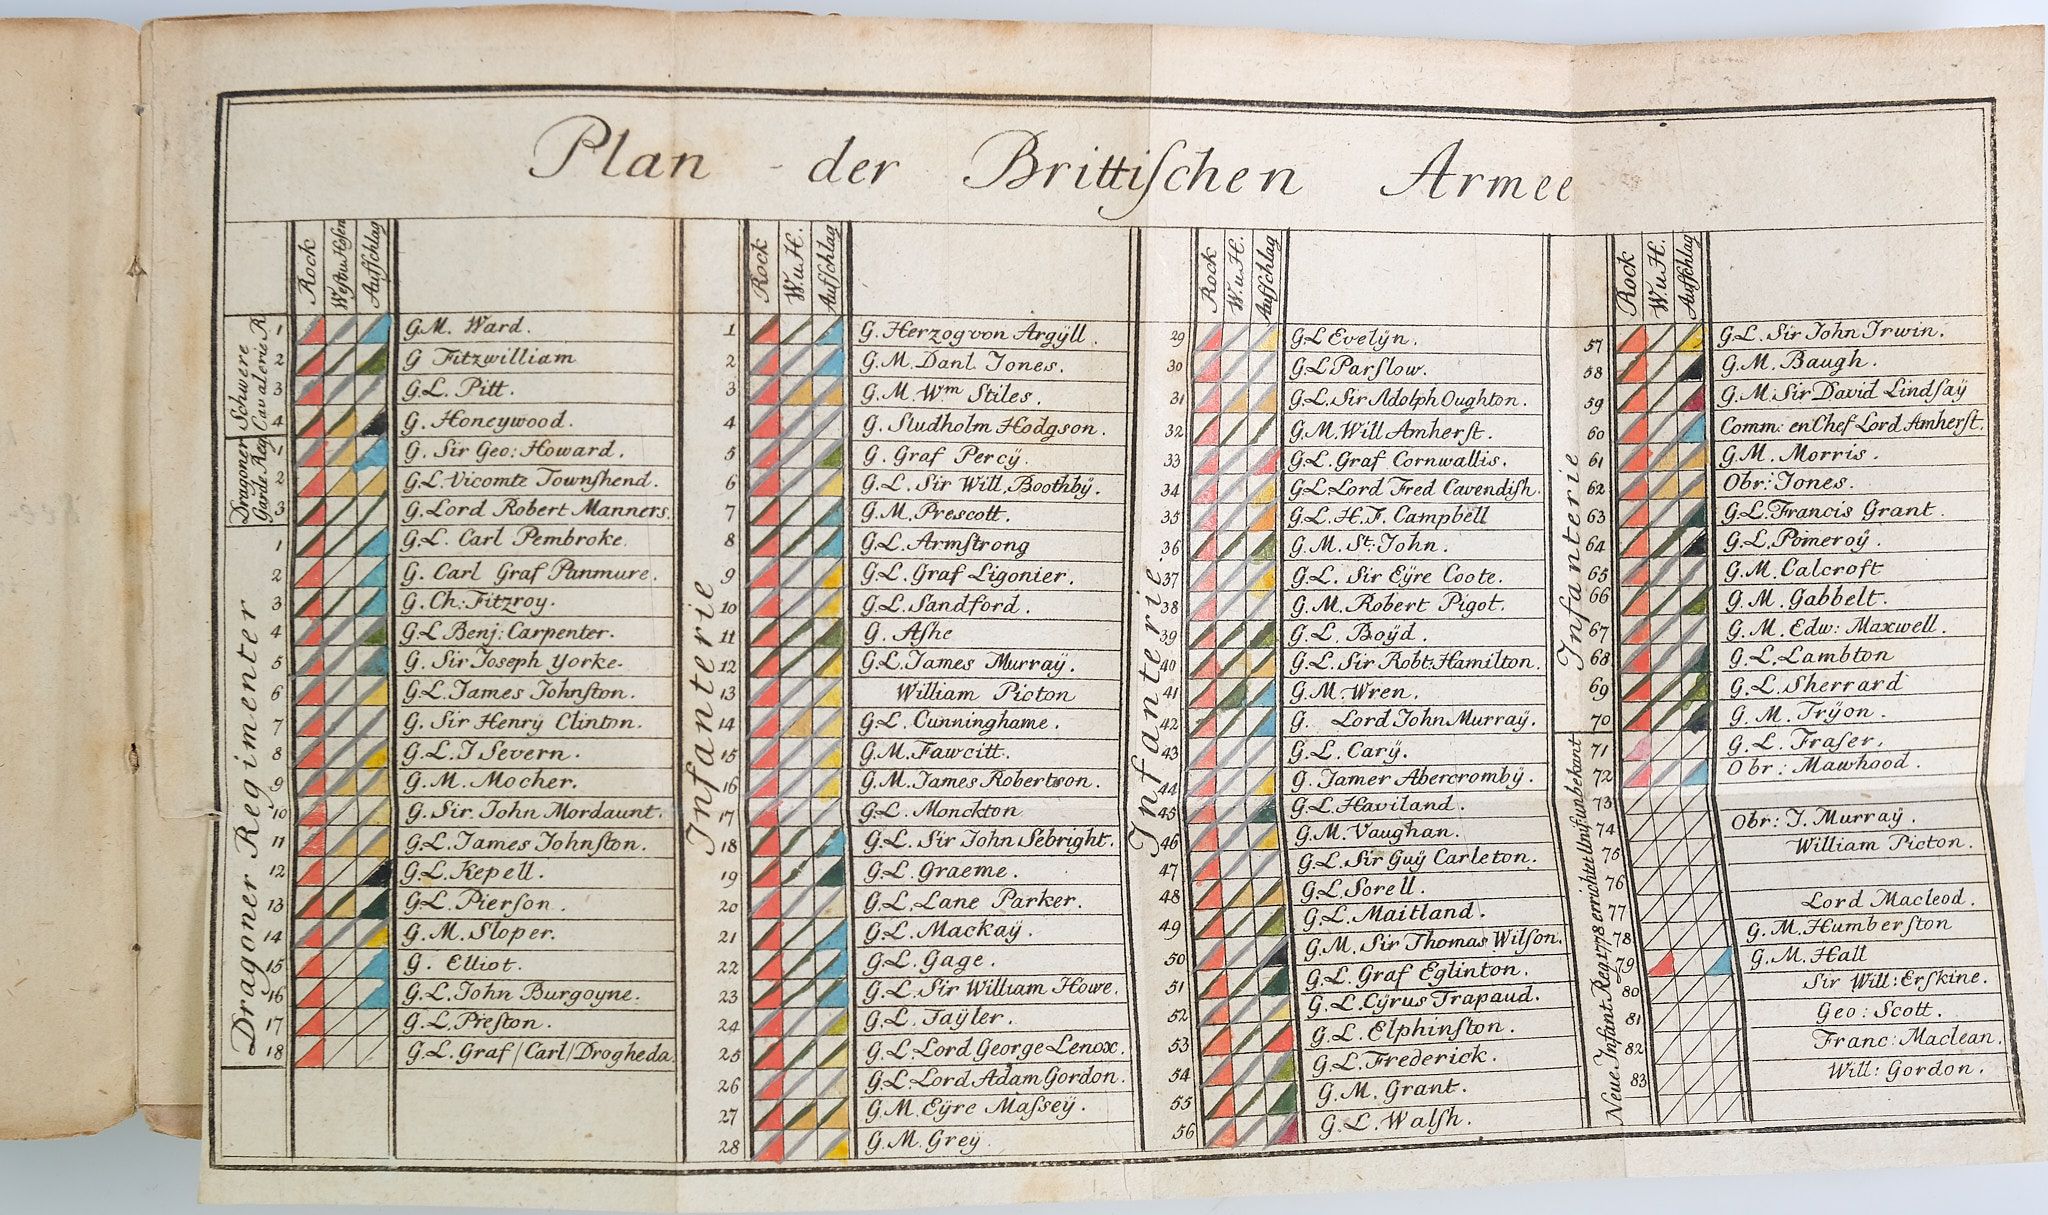 Plan der Brittiſchen Armee
Rock Weſte u Hoſen Aufſchlag
Schwere Cavalerie R
1 G.M. Ward.
2 G Fitzwilliam
3 G.L. Pitt.
4 G. Honeywood.
Dragoner Garde Reg
1 G. Sir Geo: Howard.
2 G.L. Vicomte Townſhend.
3 G. Lord Robert Manners.
Dragoner Regimenter
1 G.L. Carl Pembroke.
2 G. Carl Graf Panmure.
3 G. Ch: Fitzroy.
4 G.L Benj: Carpenter.
5 G. Sir Joseph Yorke.
6 G.L. James Johnſton.
7 G. Sir Henrÿ Clinton.
8 G.L. J Severn.
9 G.M. Mocher.
10 G. Sir. John Mordaunt.
11 G.L. James Johnſton.
12 G.L. Kepell.
13 G.L. Pierſon.
14 G.M. Sloper.
15 G. Elliot.
16 G.L. John Burgoyne.
17 G.L. Preſton.
18 G.L. Graf /Carl/ Drogheda.
Rock W. u. H. Aufſchlag
Infanterie
1 G. Herzog von Argÿll.
2 G.M. Danl. Jones.
3 G.M. Wm Stiles.
4 G. Studholm Hodgson.
5 G. Graf Percÿ.
6 G.L. Sir Will. Boothbÿ.
7 G.M. Prescott.
8 G.L. Armſtrong
9 G.L. Graf Ligonier.
10 G.L. Sandford.
11 G. Aſhe
12 G.L. James Murraÿ.
13 William Picton
14 G.L. Cunninghame.
15 G.M. Fawcitt.
16 G.M. James Robertson.
17 G.L. Monckton
18 G.L. Sir John Sebright.
19 G.L. Graeme.
20 G.L. Lane Parker.
21 G.L. Mackaÿ.
22 G.L. Gage.
23 G.L. Sir William Howe.
24 G.L. Taÿler.
25 G.L Lord George Lenox.
26 G.L Lord Adam Gordon.
27 G.M. Eÿre Maſseÿ.
28 G.M. Greÿ
Rock W. u. H. Aufſchlag
Infanterie
29 G.L Evelÿn.
30 G.L Parſlow.
31 G.L. Sir Adolph Oughton.
32 G.M. Will Amherſt.
33 G.L. Graf Cornwallis.
34 G.L Lord Fred Cavendiſh.
35 G.L. H. F. Campbell
36 G.M. St. John.
37 G.L. Sir Eÿre Coote.
38 G.M. Robert Pigot.
39 G.L. Boÿd.
40 G.L. Sir Robt. Hamilton.
41 G.M. Wren.
42 G. Lord John Murraÿ.
43 G.L. Carÿ.
44 G. Jamer Abercrombÿ.
45 G.L. Haviland.
46 G.M. Vaughan.
47 G.L. Sir Guÿ Carleton.
48 G.L. Sorell.
49 G.L. Maitland.
50 G.M. Sir Thomas Wilſon.
51 G.L. Graf Eglinton.
52 G.L. Cÿrus Trapaud.
53 G.L. Elphinſton.
54 G.L. Frederick.
55 G.M. Grant.
56 G.L. Walſh.
Rock W u H. Aufſchlag
Infanterie
57 G.L. Sir John Irwin.
58 G.M. Baugh.
59 G.M. Sir David Lindſaÿ
60 Comm: en Chef Lord Amherſt.
61 G.M. Morris.
62 Obr: Jones.
63 G.L. Francis Grant.
64 G.L. Pomeroÿ.
65 G.M. Calcroft
66 G.M. Gabbelt.
67 G.M. Edw: Maxwell.
68 G.L. Lambton
69 G.L. Sherrard
70 G.M. Trÿon.
Neue Infant: Reg. 1778 errichtet Unif: unbekant
71 G.L. Fraſer.
72 Obr: Mawhood.
73
74 Obr: J. Murraÿ.
75 William Picton.
76
77 Lord Macleod.
78 G.M. Humberſton
79 G.M. Hall
80 Sir Will: Erſkine.
81 Geo: Scott.
82 Franc: Maclean.
83 Will: Gordon.